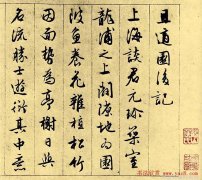 且適園後記
上海談君元珍築室
龍浦之上闢隙地為園
陂魚養花雜植松竹
因而勢為亭榭日與
名流勝士遊衍其中意